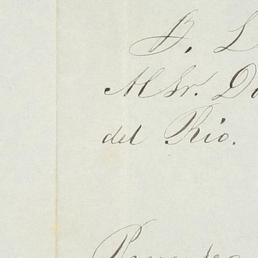 B. L
M Sr. D
del Rio.